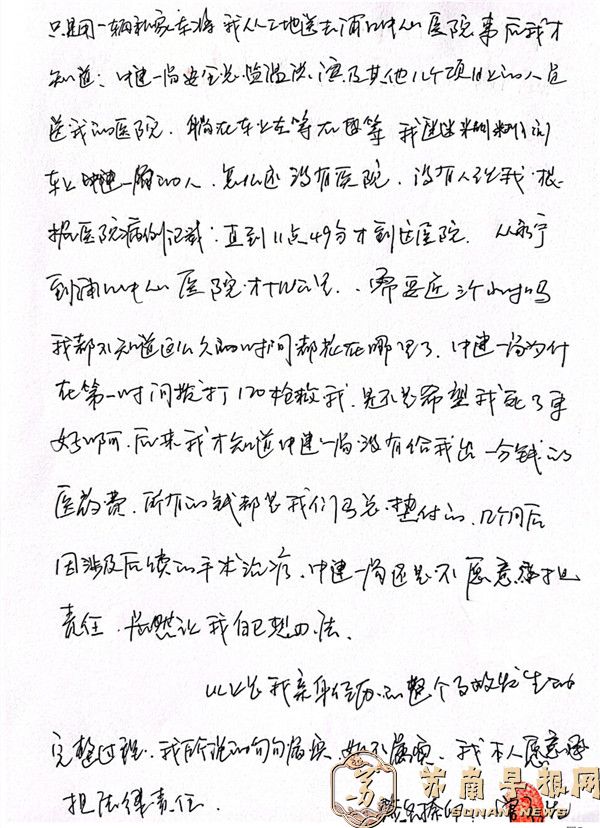 只是用一辆私家车将我从工地送去浦口中心医院事后我才
知道：中建一局安全总监温洪滨及其他几个项目上的人员
送我的医院．躺在车上左等右等我迷迷糊糊问
车上中建一局的人．怎么还没有医院．没有人理我．根
据医院病例记载：直到11点49分才到达医院．从永宁
到浦口中心医院．才十几公里．．需要近三个小时吗
我都不知道这么久的时间都花在哪里了．中建一局为什
在第一时间拨打120抢救我．是不是希望我死了更
好啊．后来我才知道中建一局没有给我出一分钱的
医药费．所有的钱都是我们马总．垫付的．几个月后
因涉及后续的手术治疗．中建一局还是不愿意承担
责任．居然让我自己想办法．
以上是我亲身经历的整个事故发生的
完整过程．我所说的句句属实．如不属实．我本人愿意承
担法律责任．
苏南早报网
SUNAN NEWS